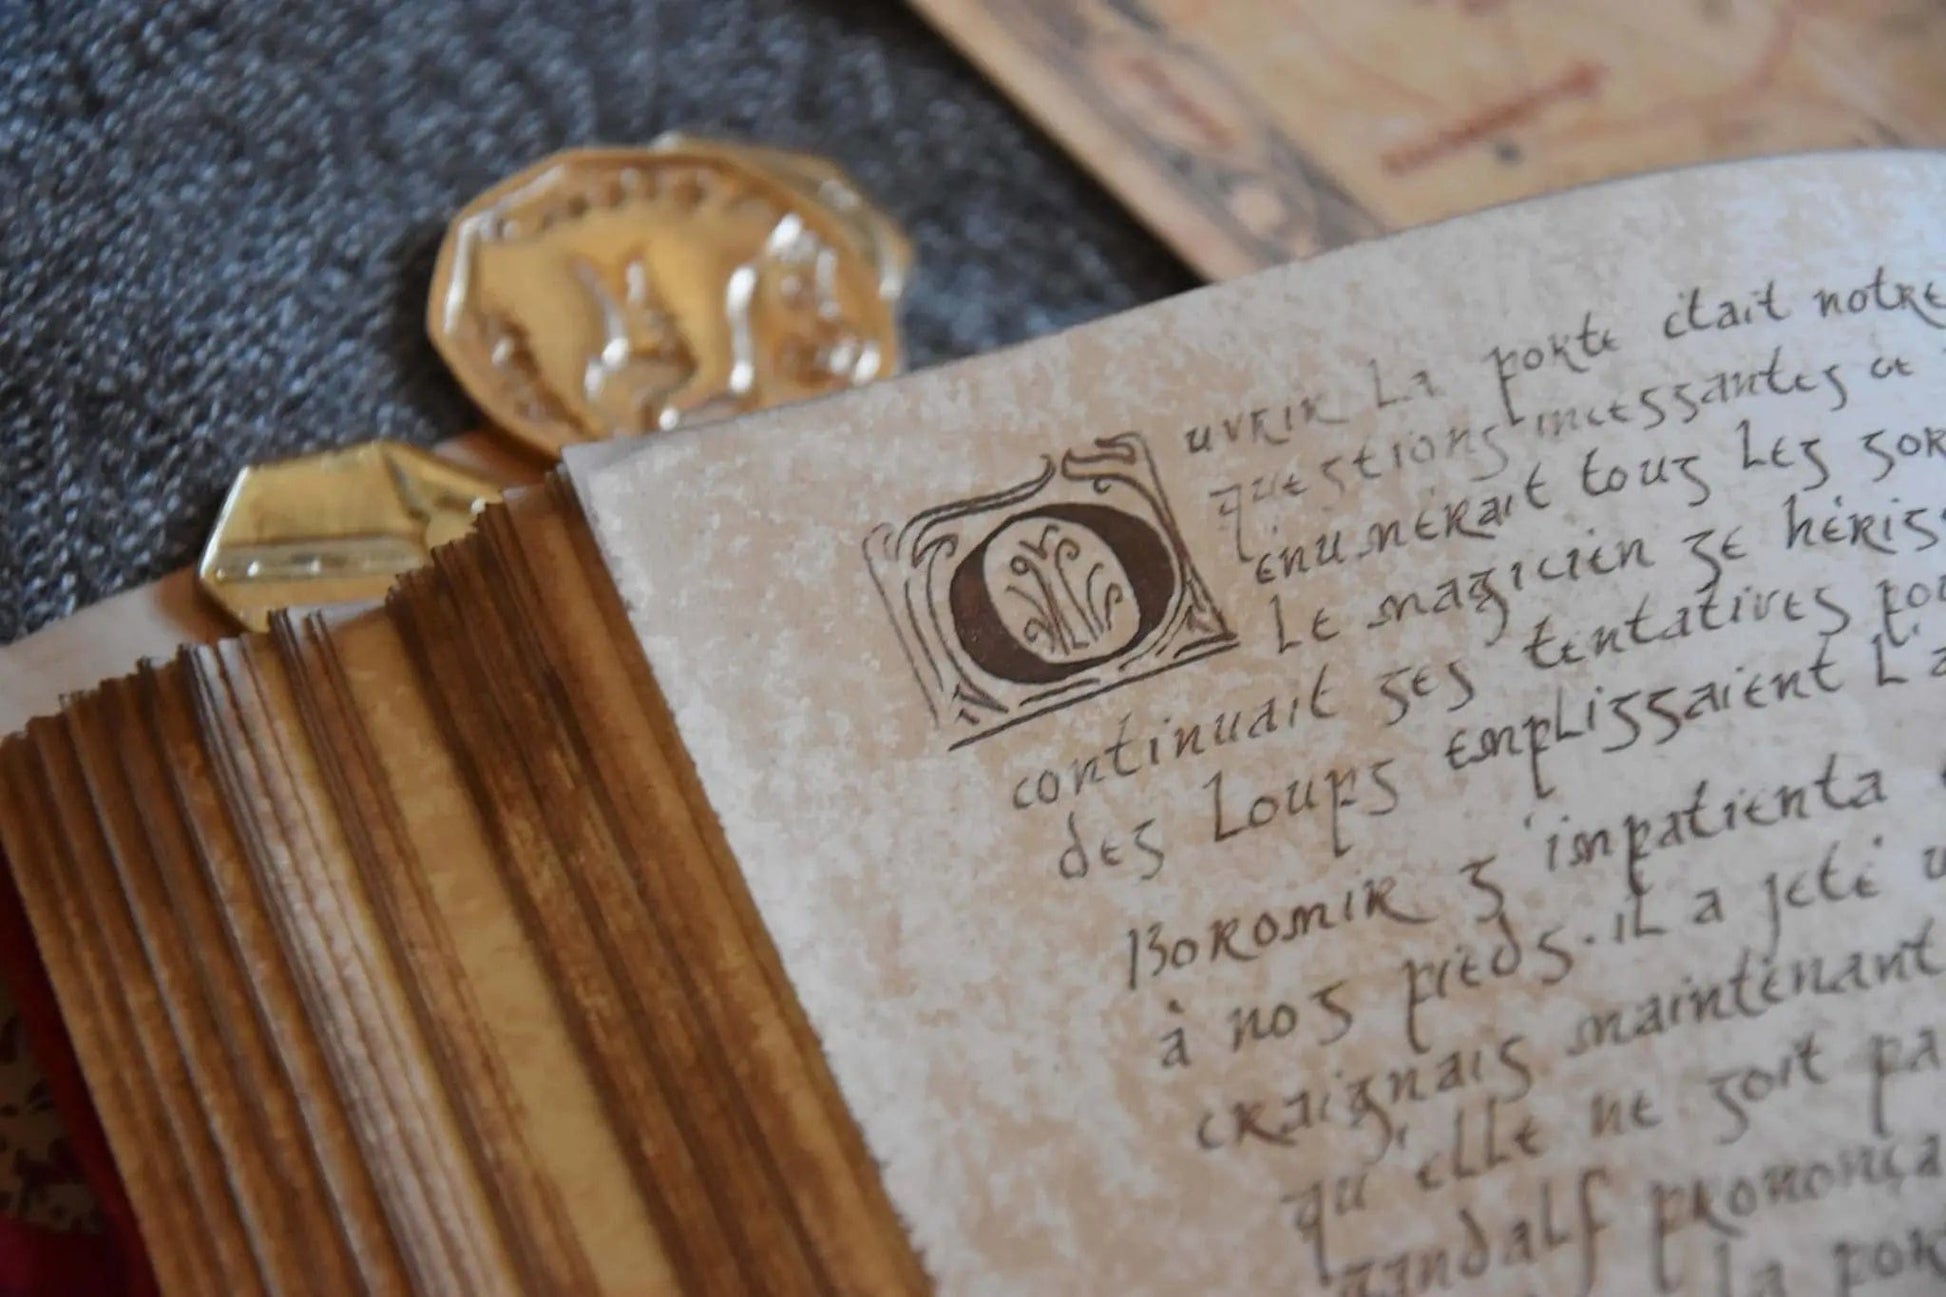 Ouvrir la porte était notre
questions incessantes de
énumérait tous les sor
Le magicien se héris
continuait ses tentatives pou
des loups emplissaient l'a
Boromir s'impatienta
à nos pieds. il a jeté u
craignais maintenant
qu'elle ne soit pa
gandalf prononça
la por